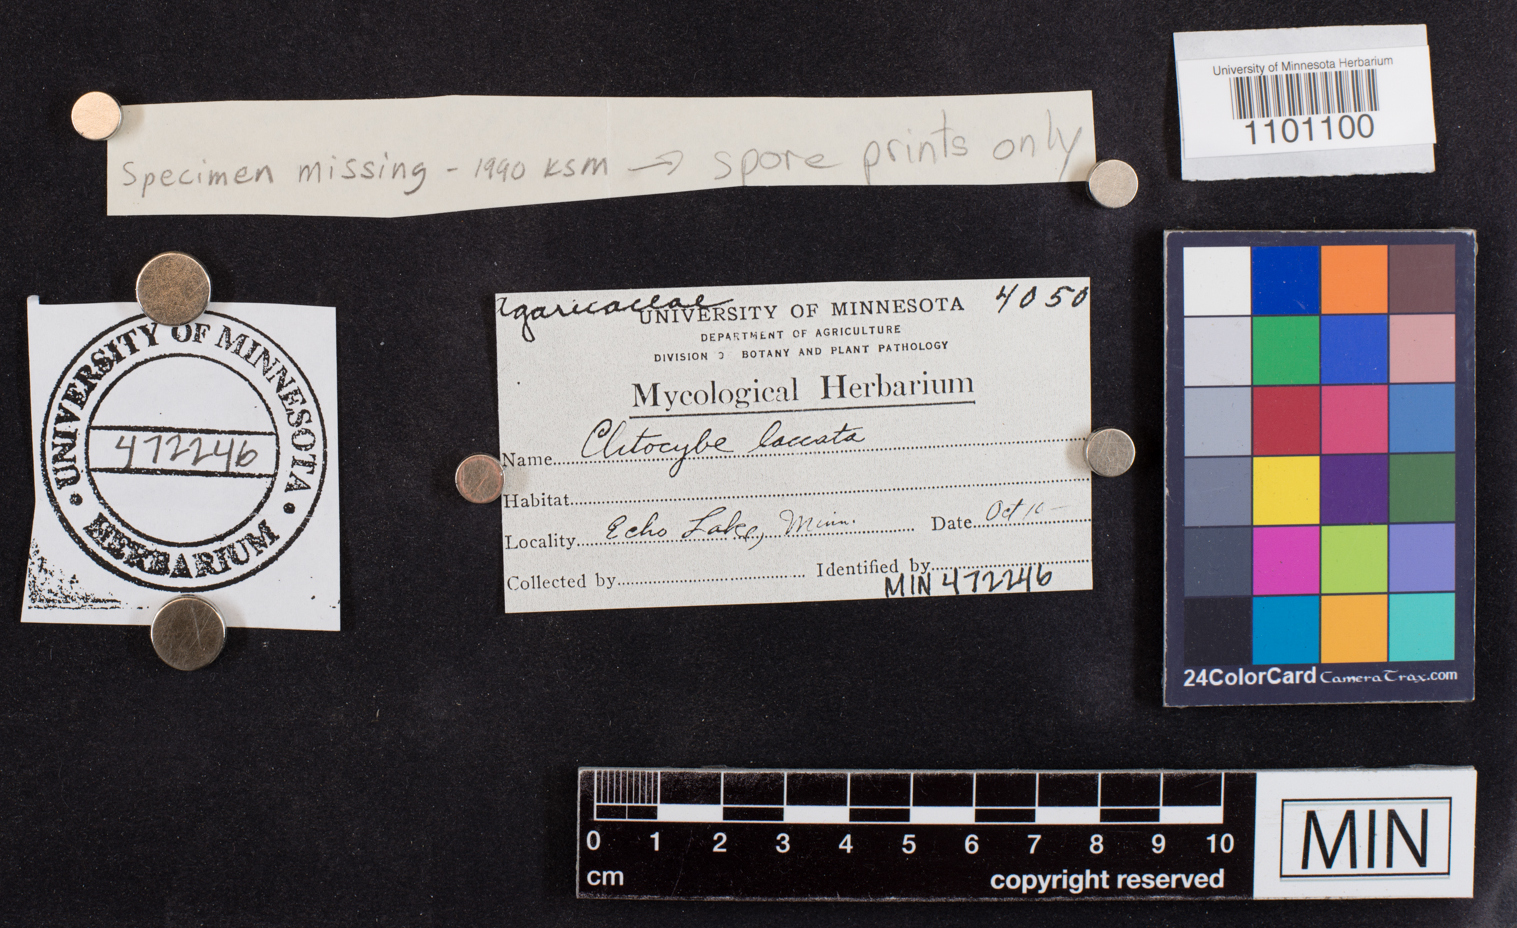 University of Minnesota Herbarium
1101100
Specimen missing - 1990 KSM → spore prints only
UNIVERSITY OF MINNESOTA
472246
HERBARIUM
Agaricaceae
4050
UNIVERSITY OF MINNESOTA
DEPARTMENT OF AGRICULTURE
DIVISION BOTANY AND PLANT PATHOLOGY
Mycological Herbarium
Name Clitocybe laccata
Habitat
Locality Echo Lake, Minn. Date Oct 10 -
Collected by Identified by
MIN 472246
24ColorCard CameraTrax.com
0 1 2 3 4 5 6 7 8 9 10
cm copyright reserved
MIN